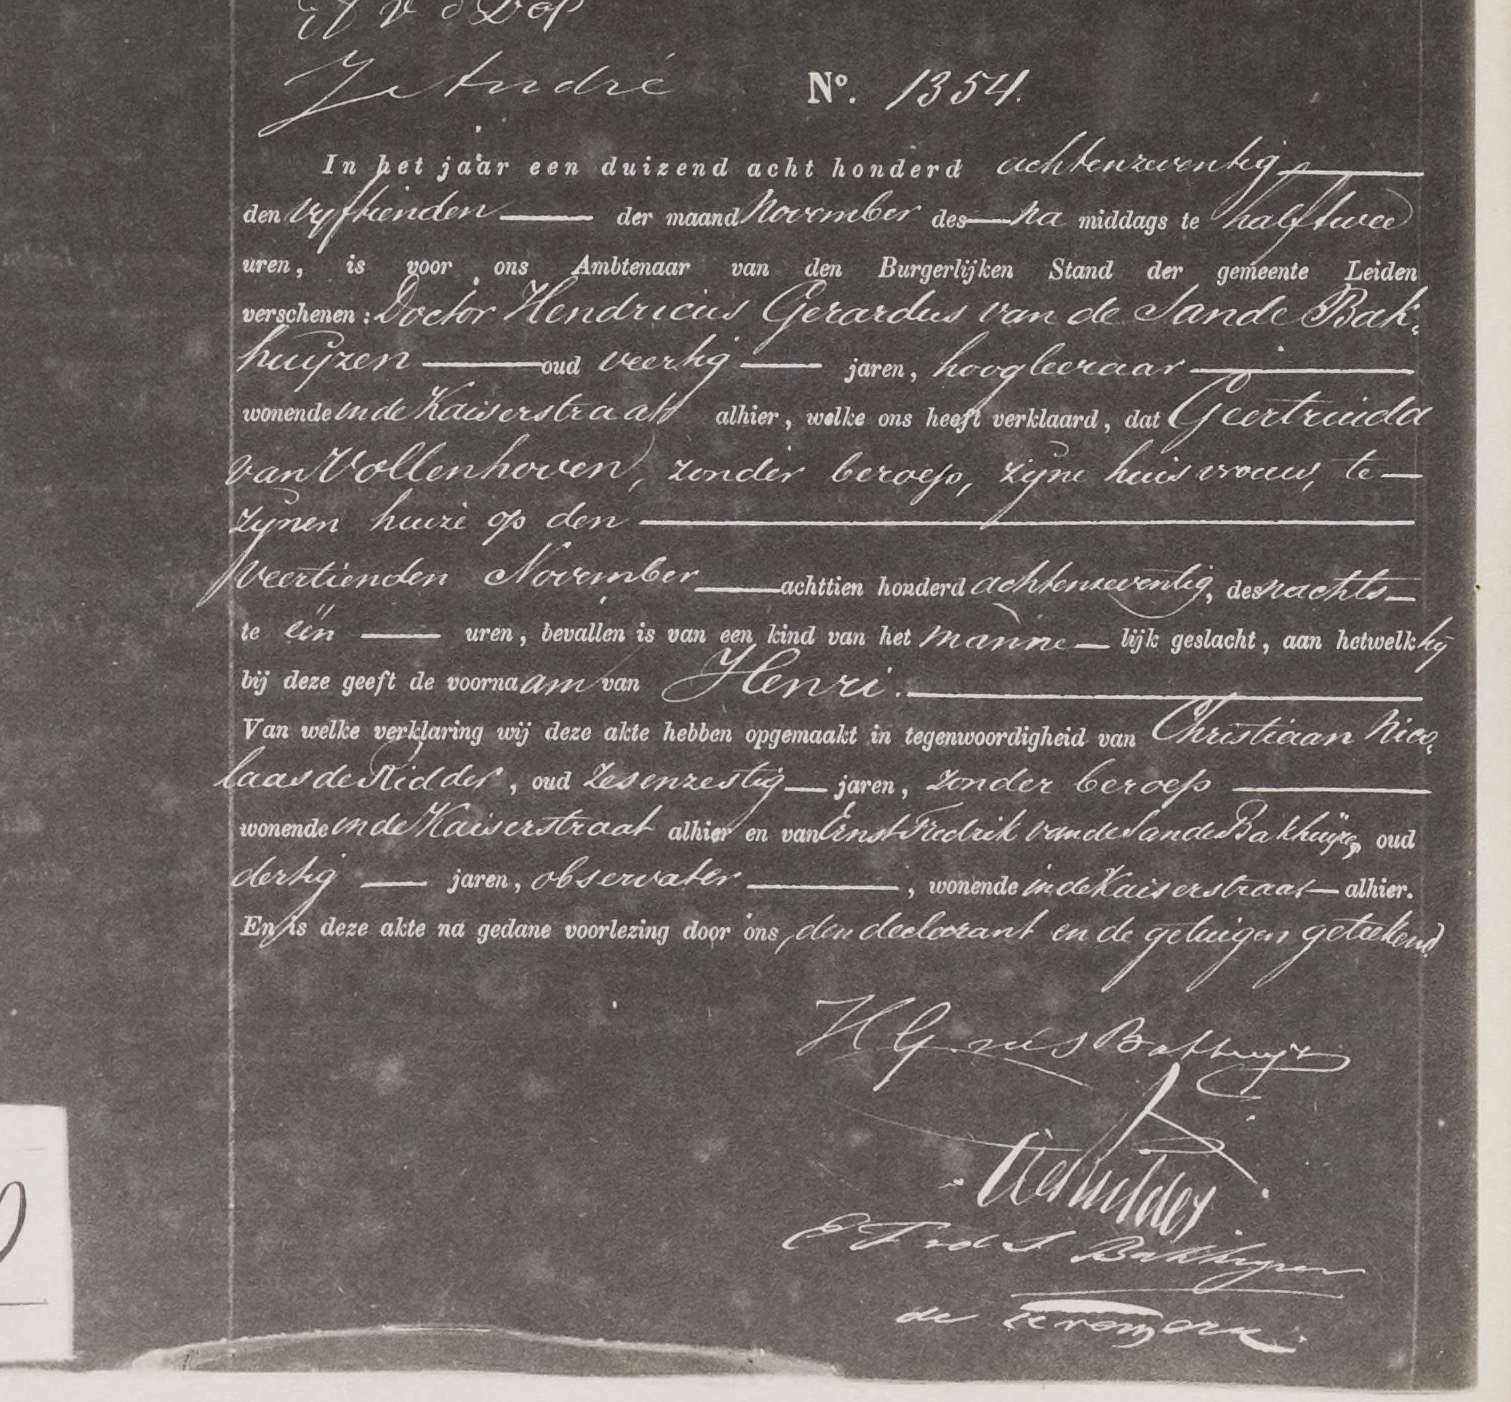 J André
Nº. 1354.
In het jaar een duizend acht honderd achtenzeventig
den vyftienden der maand November des na middags te half twee
uren, is voor ons Ambtenaar van den Burgerlijken Stand der gemeente Leiden
verschenen: Doctor Hendricus Gerardus van de Sande Bak-
huijzen oud veertig jaren, hoogleeraar
wonende in de Kaiserstraat alhier, welke ons heeft verklaard, dat Geertruida
van Vollenhoven, zonder beroep, zyne huisvrouw, te
zynen huize op den
veertienden November achttien honderd achtenzeventig, des nachts
te één uren, bevallen is van een kind van het manne lijk geslacht, aan hetwelk hij
bij deze geeft de voornaam van Henri.
Van welke verklaring wij deze akte hebben opgemaakt in tegenwoordigheid van Christiaan Nico-
laas de Ridder, oud zesenzestig jaren, zonder beroep
wonende in de Kaiserstraat alhier en van Ernst Fredrik van de Sande Bakhuijzen, oud
dertig jaren, observator, wonende in de Kaiserstraat alhier.
En is deze akte na gedane voorlezing door ons, den declarant en de getuigen geteekend
H G vd S Bakhuijzen
de Ridder
E F vd S. Bakhuyzen
de